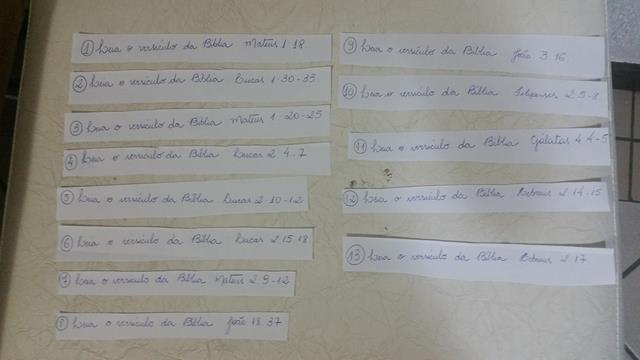 ① Leia o versículo da Bíblia Mateus 1.18
② Leia o versículo da Bíblia Lucas 1.30-33
③ Leia o versículo da Bíblia Mateus 1.20-25
④ Leia o versículo da Bíblia Lucas 2.4.7
⑤ Leia o versículo da Bíblia Lucas 2.10-12
⑥ Leia o versículo da Bíblia Lucas 2.15.18
⑦ Leia o versículo da Bíblia Mateus 2.9-12
⑧ Leia o versículo da Bíblia João 18.37
⑨ Leia o versículo da Bíblia João 3.16
⑩ Leia o versículo da Bíblia Filipenses 2.5-8
⑪ Leia o versículo da Bíblia Gálatas 4.4-5
⑫ Leia o versículo da Bíblia Hebreus 2.14-15
⑬ Leia o versículo da Bíblia Hebreus 2.17